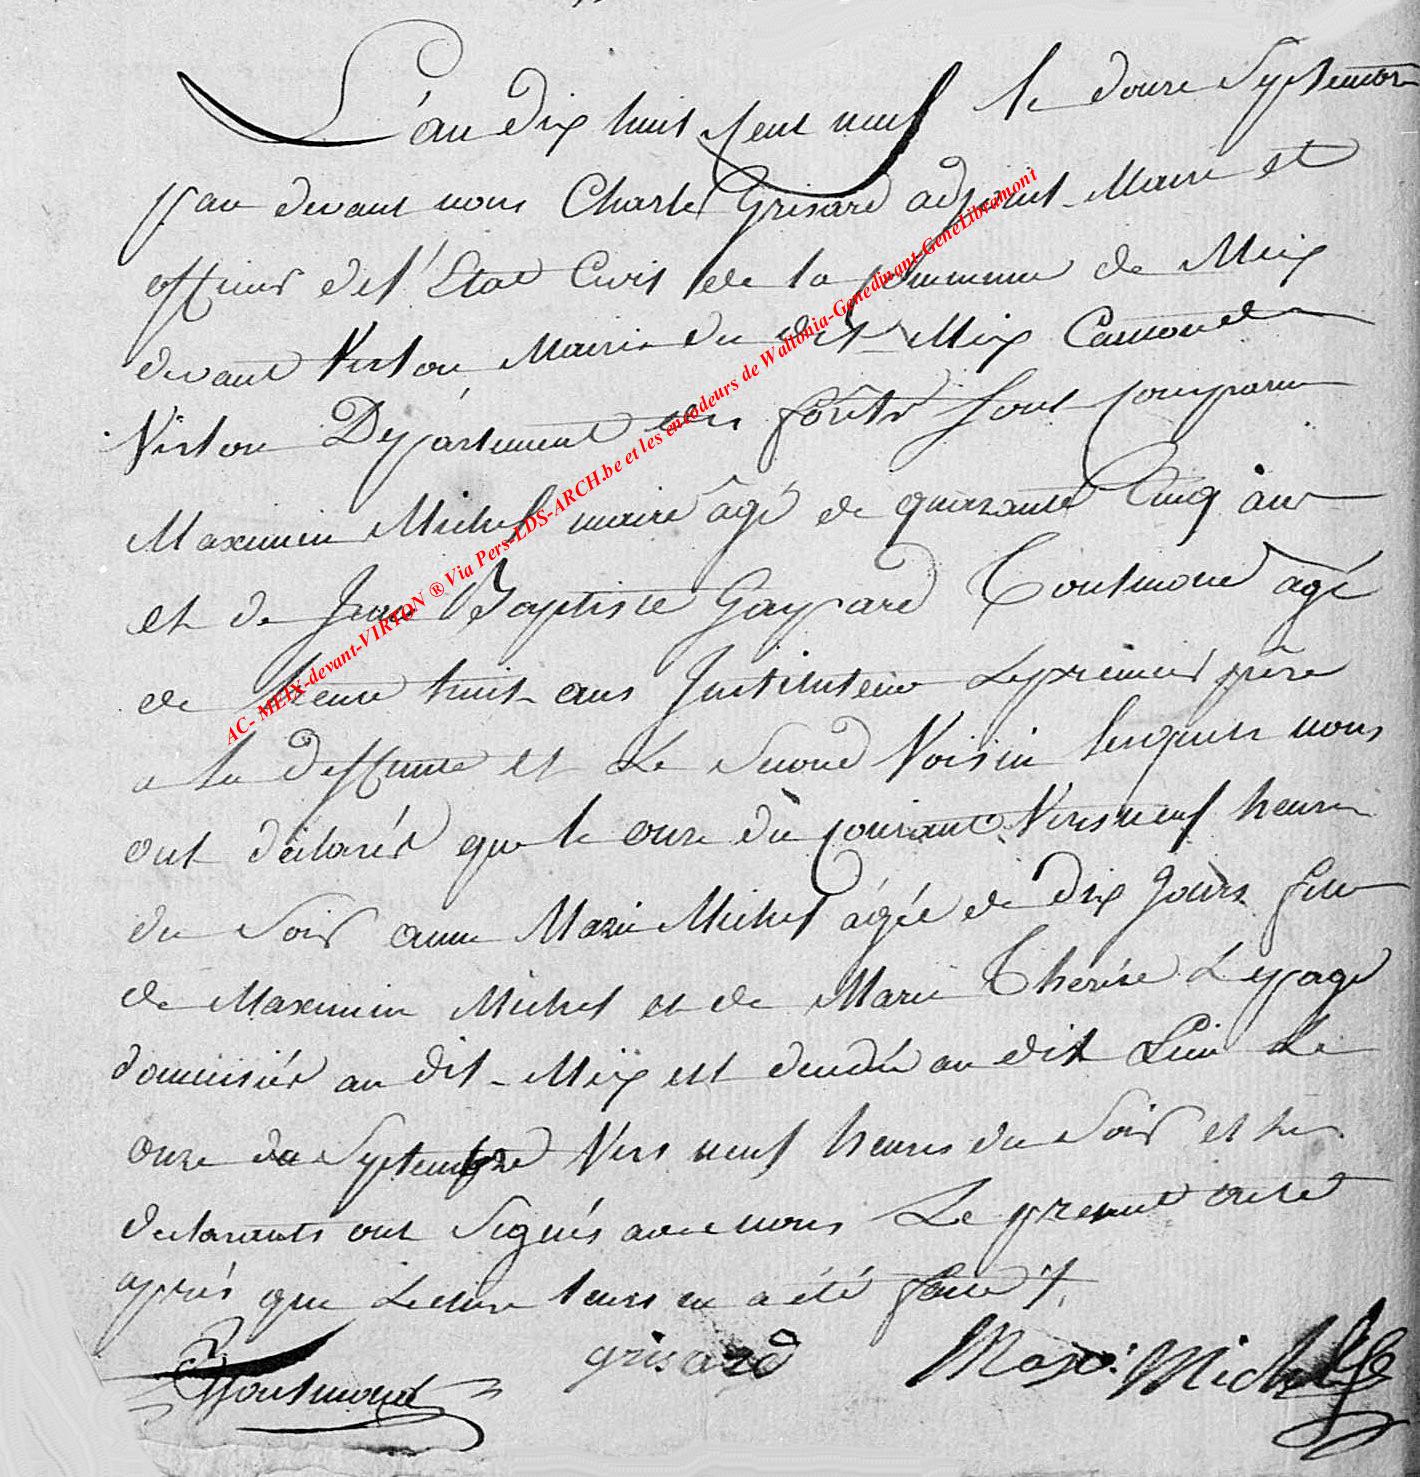 L'an dix huit cent neuf le douze Septembre
par devant nous Charle Grisard adjoint Maire et
officier de l'Etat Civil de la Commune de Meix
devant Virton Mairie du dit Meix Canton de
Virton Département des forêts Sont Comparu
Maximin Michel maire âgé de quarante Cinq ans
et de Jean Baptiste Gaspard Toutmond agé
de trente huit ans Instituteur Le premier père
a la deffunte et Le Second Voisin lesquels nous
ont déclarés que le onze du Courant Vers neuf heures
du Soir anne Marie Michel agée de dix Jours fille
de Maximin Michel et de Marie Therése Lepage
domiciliés au dit Meix est décédée au dit Lieu Le
onze du Septembre Vers neuf heures du Soir et les
declarants ont Signés avec nous Le present acte
après que Lecture leurs en a été faite
Toutmond grisard Maxi: Michel
AC- MEIX-devant-VIRTON ® Via Pers-LDS-ARCH.be et les encodeurs de Wallonia-Genedinant-GeneLibramont